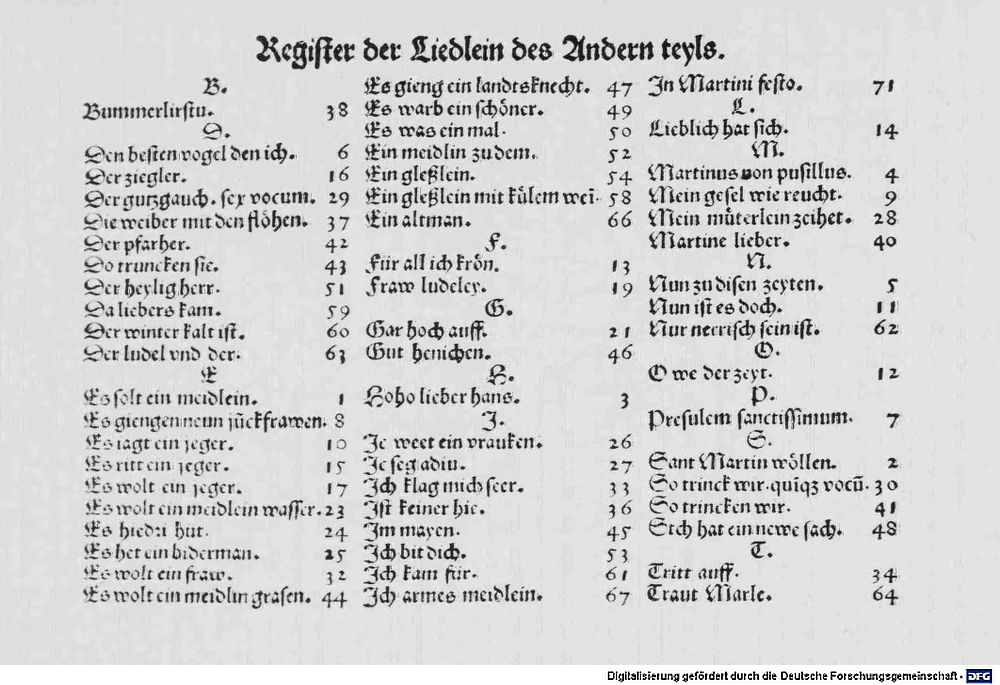 Register der Liedlein des Andern teyls.
B.
Bummerlirstu. 38
D.
Den besten vogel den ich. 6
Der ziegler. 16
Der gutzgauch. sex vocum. 29
Die weiber mit den flöhen. 37
Der pfarher. 42
Do truncken sie. 43
Der heylig herr. 51
Da liebers kam. 59
Der winter kalt ist. 60
Der ludel vnd der. 63
E
Es solt ein meidlein. 1
Es giengen neun jückfrawen. 8
Es iagt ein jeger. 10
Es ritt ein jeger. 15
Es wolt ein jeger. 17
Es wolt ein meidlein wasser. 23
Es hiedei hut. 24
Es het ein biderman. 25
Es wolt ein fraw. 32
Es wolt ein meidlin grasen. 44
Es gieng ein landtsknecht. 47
Es warb ein schöner. 49
Es was ein mal. 50
Ein meidlin zu dem. 52
Ein gleßlein. 54
Ein gleßlein mit külem wei. 58
Ein altman. 66
F.
Für all ich krön. 13
Fraw ludeley. 19
G.
Gar hoch auff. 21
Gut henichen. 46
H.
Hoho lieber hans. 3
J.
Je weet ein vrauken. 26
Je seg adiu. 27
Ich klag mich seer. 33
Ist keiner hie. 36
Im mayen. 45
Ich bit dich. 53
Ich kam für. 61
Ich armes meidlein. 67
In Martini festo. 71
L.
Lieblich hat sich. 14
M.
Martinus von pusillus. 4
Mein gesel wie reucht. 9
Mein müterlein zeihet. 28
Martine lieber. 40
N.
Nun zu disen zeyten. 5
Nun ist es doch. 11
Nur nerrisch sein ist. 62
O.
O we der zeyt. 12
P.
Presulem sanctissimum. 7
S.
Sant Martin wöllen. 2
So trinck wir. quīqz vocū. 30
So trincken wir. 41
Sich hat ein newe sach. 48
T.
Tritt auff. 34
Traut Marle. 64
Digitalisierung gefördert durch die Deutsche Forschungsgemeinschaft - DFG